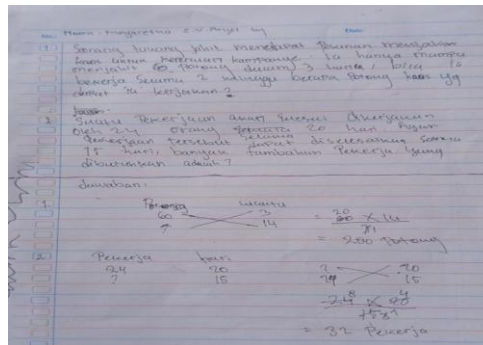 No. Nama: Margaretha E.V. Anjel
1 Seorang tukang jahit mendapat Pesanan menjahit
kaos untuk keperluan kampanye. Ia hanya mampu
menjahit 60 Potong dalam 3 hari, bila Ia
bekerja Selama 2 Minggu berapa Potong kaos yg
dapat Ia kerjakan?
2 Suatu Pekerjaan dikerjakan
oleh 24 orang selama 20 hari Agar
Pekerjaan tersebut dapat diselesaikan Selama
15 hari, banyak tambahan Pekerja yang
dibutuhkan adalah?
Jawaban:
1. Potong Waktu
60 3
? 14
= 20 60 x 14
3 1
= 280 Potong
2. Pekerja hari
24 20
? 15
? 20
24 15
24 8 x 20 4
15 3 1
= 32 Pekerja